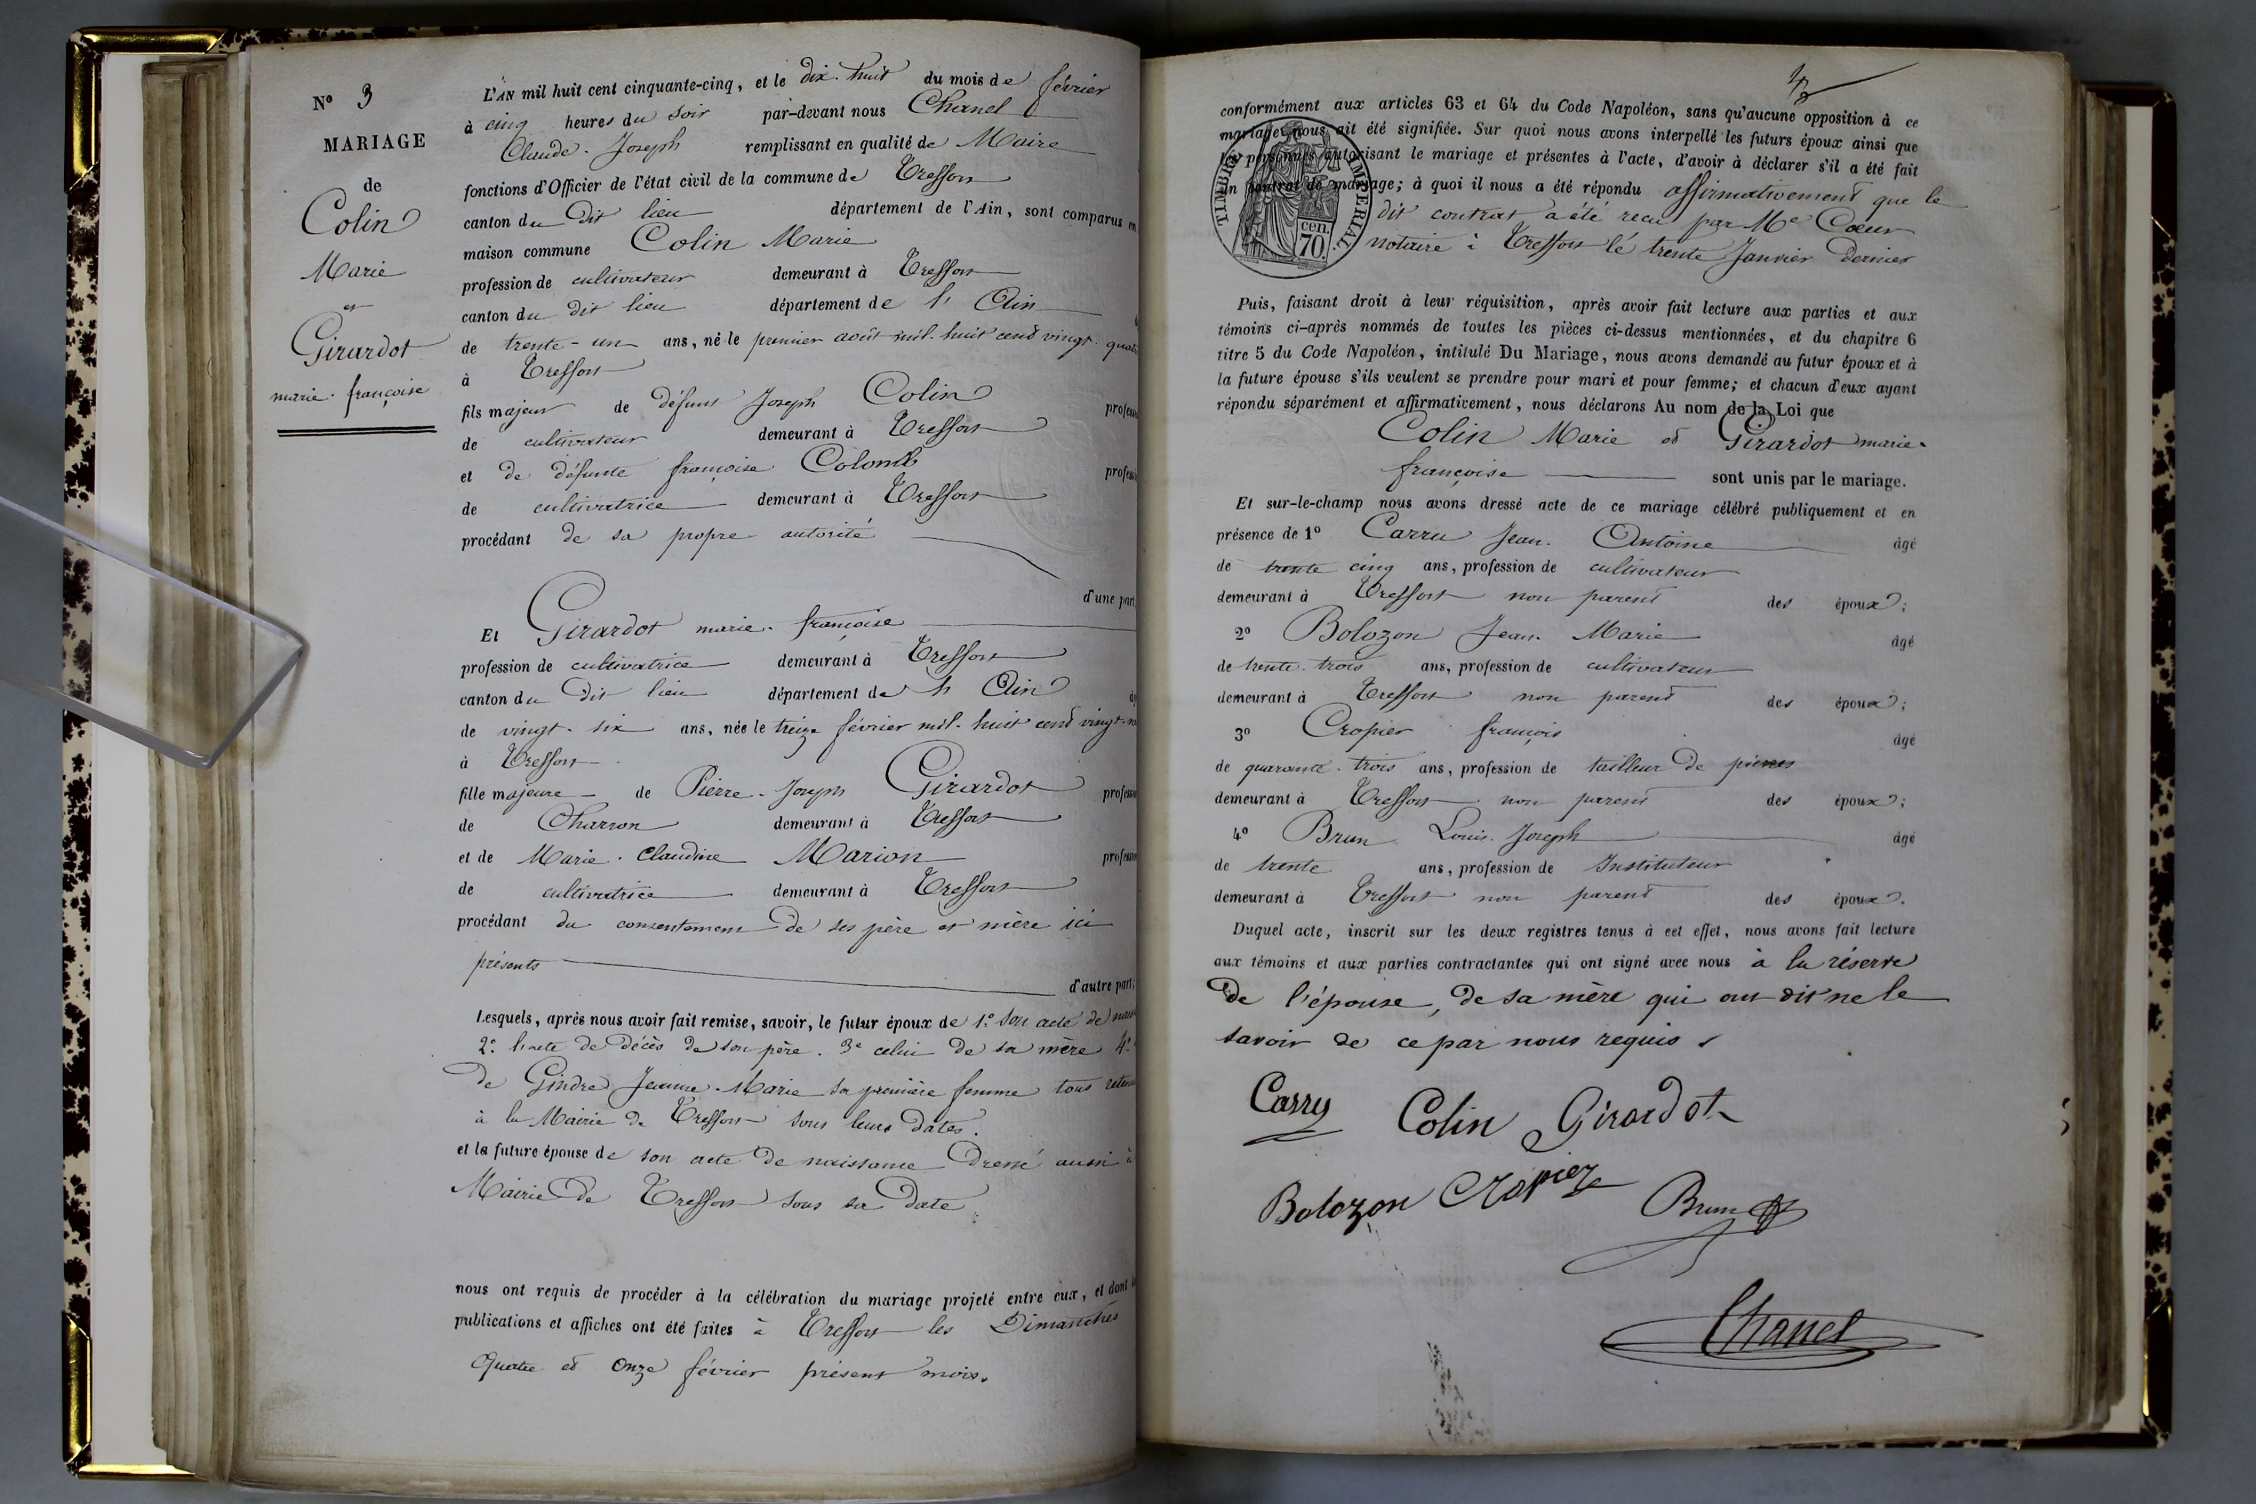 N° 3
MARIAGE
de
Colin
Marie
et
Girardot
marie-françoise
L'AN mil huit cent cinquante-cinq, et le dix-huit du mois de février
à cinq heures du soir par-devant nous Chanel
Claude-Joseph remplissant en qualité de Maire
fonctions d'Officier de l'état civil de la commune de Treffort
canton du dit lieu département de l'Ain, sont comparus en
maison commune Colin Marie
profession de cultivateur demeurant à Treffort
canton du dit lieu département de l'Ain
de trente-un ans, né le premier août mil-huit cend vingt-quatr
à Treffort
fils majeur de défunt Joseph Colin profess
de cultivateur demeurant à Treffort
et de défunte françoise Colomb profess
de cultivatrice demeurant à Treffort
procédant de sa propre autorité
d'une part,
Et Girardot marie-françoise
profession de cultivatrice demeurant à Treffort
canton du dit lieu département de l'Ain
de vingt-six ans, née le treize février mil-huit cend vingt-n
à Treffort
fille majeure de Pierre-Joseph Girardot profess
de Charron demeurant à Treffort
et de Marie-Claudine Marion profess
de cultivatrice demeurant à Treffort
procédant du consentement de ses père et mère ici
présents
d'autre part;
Lesquels, après nous avoir fait remise, savoir, le futur époux de 1° son acte de naiss
2° l'acte de décès de son père. 3° celui de sa mère 4°
de Gindre Jeanne-Marie sa première femme tous retenus
à la Mairie de Treffort sous leurs dates.
et la future épouse de son acte de naissance dressé aussi à
Mairie de Treffort sous sa date
nous ont requis de procéder à la célébration du mariage projeté entre eux, et dont
publications et affiches ont été faites à Treffort les Dimanches
quatre et onze février présent mois.
conformément aux articles 63 et 64 du Code Napoléon, sans qu'aucune opposition à ce
mariage nous ait été signifiée. Sur quoi nous avons interpellé les futurs époux ainsi que
les personnes autorisant le mariage et présentes à l'acte, d'avoir à déclarer s'il a été fait
un contrat de mariage; à quoi il nous a été répondu affirmativement que le
dit contrat a été recu par Me Cœur
notaire à Treffort le trente Janvier dernier
TIMBRE IMPERIAL
cen.
70.
Puis, faisant droit à leur réquisition, après avoir fait lecture aux parties et aux
témoins ci-après nommés de toutes les pièces ci-dessus mentionnées, et du chapitre 6
titre 5 du Code Napoléon, intitulé Du Mariage, nous avons demandé au futur époux et à
la future épouse s'ils veulent se prendre pour mari et pour femme; et chacun d'eux ayant
répondu séparément et affirmativement, nous déclarons Au nom de la Loi que
Colin Marie et Girardot marie-
françoise sont unis par le mariage.
Et sur-le-champ nous avons dressé acte de ce mariage célébré publiquement et en
présence de 1° Carru Jean-Antoine âgé
de trente cinq ans, profession de cultivateur
demeurant à Treffort non parent des époux;
2° Bolozon Jean-Marie âgé
de trente-trois ans, profession de cultivateur
demeurant à Treffort non parent des époux;
3° Cropier françois âgé
de quarante-trois ans, profession de tailleur de pierres
demeurant à Treffort non parent des époux;
4° Brun Louis-Joseph âgé
de trente ans, profession de Instituteur
demeurant à Treffort non parent des époux.
Duquel acte, inscrit sur les deux registres tenus à cet effet, nous avons fait lecture
aux témoins et aux parties contractantes qui ont signé avec nous à la réserve
de l'épouse, de sa mère qui ont dit ne le
savoir de ce par nous requis.
Carry Colin Girardot
Bolozon Cropier Brun
Chanel